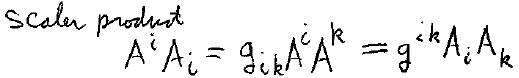 Scaler product
AⁱAᵢ = gᵢₖAⁱAᵏ = gⁱᵏAᵢAₖ